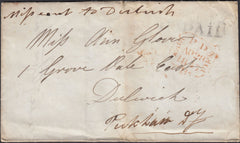 Missent to Dulwich
PAID
Miss Ann Glover
1 Grove Vale Cott
Dulwich
Peckham